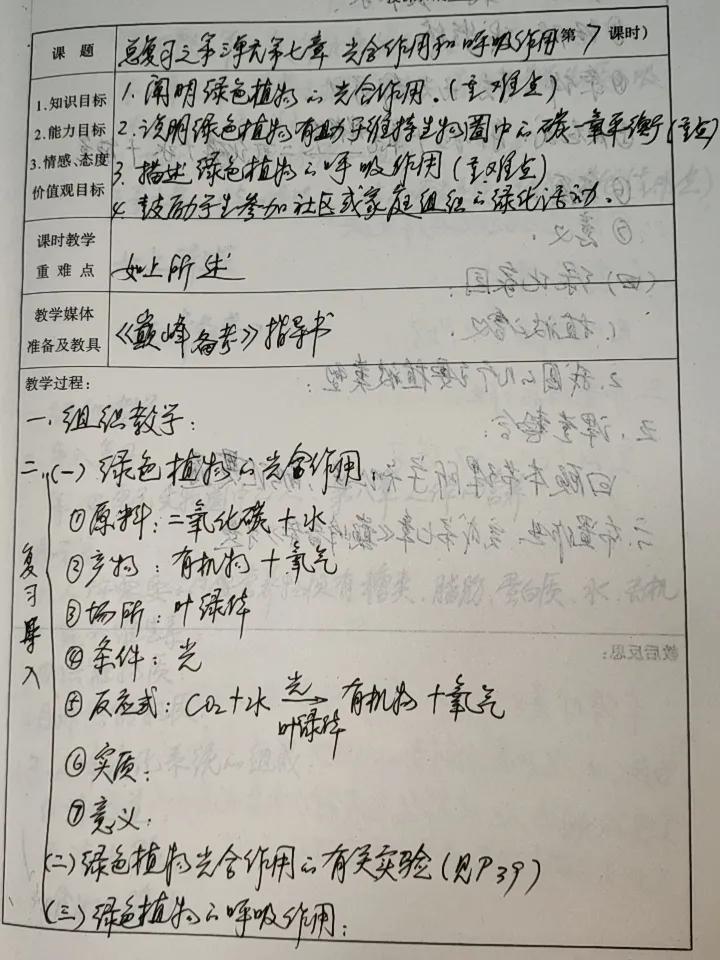 课题 总复习之第三单元第七章 光合作用和呼吸作用 第7课时)
1.知识目标 1. 阐明绿色植物的光合作用。(重难点)
2.能力目标 2. 说明绿色植物有助于维持生物圈中的碳—氧平衡(重点)
3.情感、态度 3. 描述绿色植物的呼吸作用(重难点)
价值观目标 4. 鼓励学生参加社区或家庭组织的绿化活动。
课时教学
重难点 如上所述
教学媒体
准备及教具 《巅峰备考》指导书
教学过程:
一.组织教学:
二.(一) 绿色植物的光合作用:
复习导入
①原料:二氧化碳+水
②产物:有机物+氧气
③场所:叶绿体
④条件:光
⑤反应式:CO2+水 光→叶绿体 有机物+氧气
⑥实质:
⑦意义:
(二)绿色植物光合作用的有关实验(见P39)
(三)绿色植物的呼吸作用: